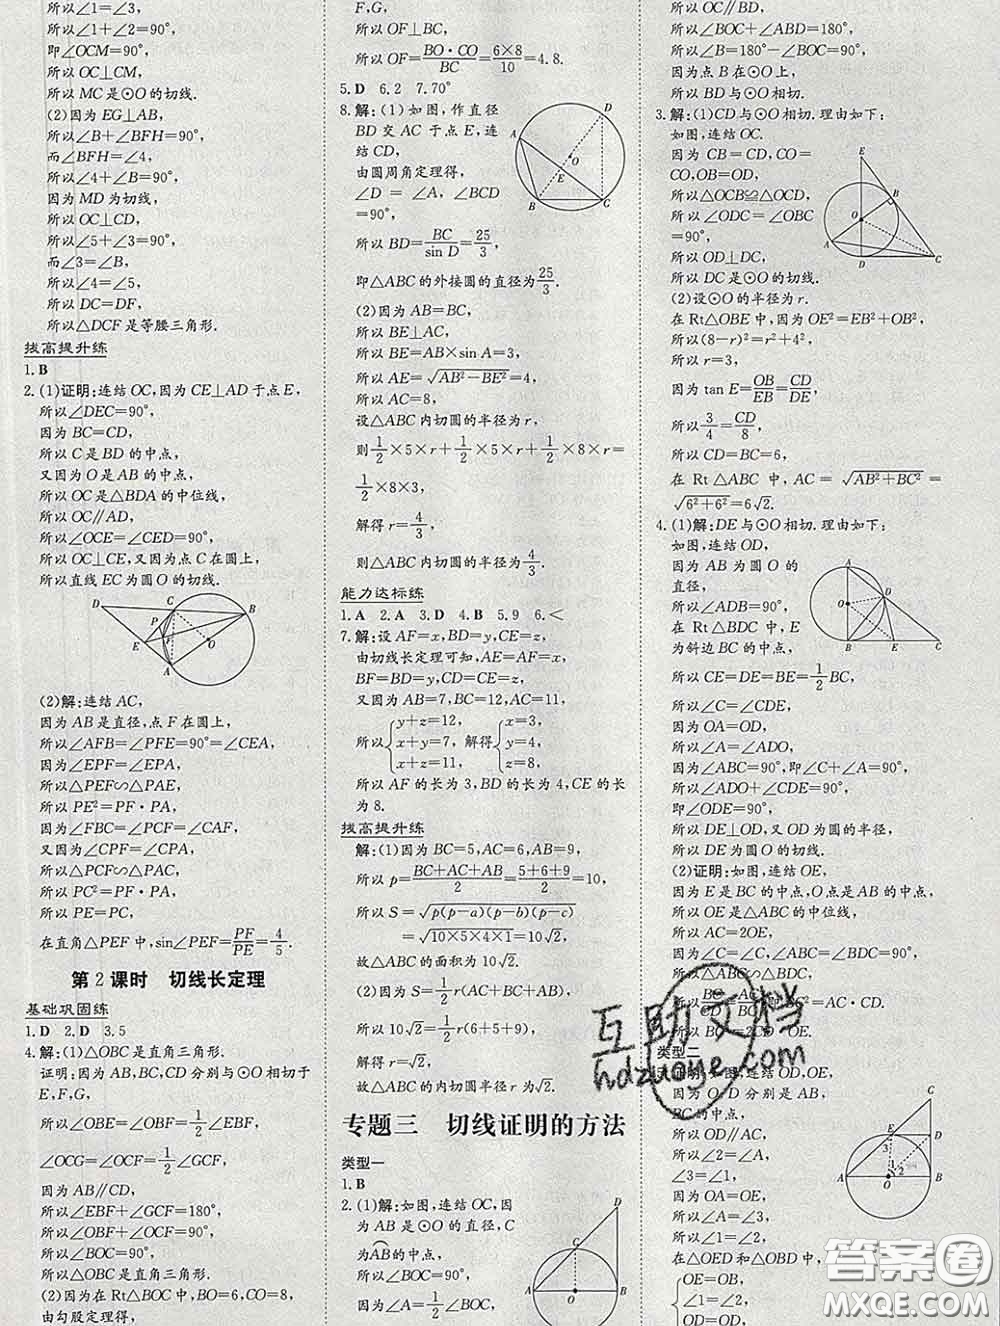 所以∠1=∠3,
所以∠1+∠2=90°,
即∠OCM=90°,
所以OC⊥CM,
所以MC是⊙O的切线.
(2)因为EG⊥AB,
所以∠B+∠BFH=90°,
而∠BFH=∠4,
所以∠4+∠B=90°,
因为MD为切线,
所以OC⊥CD,
所以∠5+∠3=90°,
而∠3=∠B,
所以∠4=∠5,
所以DC=DF,
所以△DCF是等腰三角形.
拔高提升练
1.B
2.(1)证明:连结OC,因为CE⊥AD于点E,
所以∠DEC=90°,
因为BC=CD,
所以C是BD的中点,
又因为O是AB的中点,
所以OC是△BDA的中位线,
所以OC∥AD,
所以∠OCE=∠CED=90°,
所以OC⊥CE,又因为点C在圆上,
所以直线EC为圆O的切线.
D C B P E F O A
(2)解:连结AC,
因为AB是直径,点F在圆上,
所以∠AFB=∠PFE=90°=∠CEA,
因为∠EPF=∠EPA,
所以△PEF∽△PAE,
所以PE²=PF·PA,
因为∠FBC=∠PCF=∠CAF,
又因为∠CPF=∠CPA,
所以△PCF∽△PAC,
所以PC²=PF·PA,
所以PE=PC,
在直角△PEF中,sin∠PEF=PF/PE=4/5.
第2课时 切线长定理
基础巩固练
1.D 2.D 3.5
4.解:(1)△OBC是直角三角形.
证明:因为AB,BC,CD分别与⊙O相切于
E,F,G,
所以∠OBE=∠OBF=1/2∠EBF,
∠OCG=∠OCF=1/2∠GCF,
因为AB∥CD,
所以∠EBF+∠GCF=180°,
所以∠OBF+∠OCF=90°,
所以∠BOC=90°,
所以△OBC是直角三角形.
(2)因为在Rt△BOC中,BO=6,CO=8,
由勾股定理得,
所以OF⊥BC,
所以OF=BO·CO/BC=6×8/10=4.8.
5.D 6.2 7.70°
8.解:(1)如图,作直径
BD交AC于点E,连
结CD,
由圆周角定理得,
∠D=∠A,∠BCD
=90°,
D A O E B C
所以BD=BC/sin D=25/3,
即△ABC的外接圆的直径为25/3.
(2)因为∠BEC=90°,
所以BE⊥AC,
所以BE=AB×sin A=3,
所以AE=√(AB²-BE²)=4,
所以AC=8,
设△ABC内切圆的半径为r,
则1/2×5×r+1/2×5×r+1/2×8×r=
1/2×8×3,
解得r=4/3,
则△ABC内切圆的半径为4/3.
能力达标练
1.A 2.A 3.D 4.B 5.9 6.<
7.解:设AF=x,BD=y,CE=z,
由切线长定理可知,AE=AF=x,
BF=BD=y,CD=CE=z,
又因为AB=7,BC=12,AC=11,
所以{y+z=12, x+y=7, x+z=11, 解得{x=3, y=4, z=8,
所以AF的长为3,BD的长为4,CE的长
为8.
拔高提升练
解:(1)因为BC=5,AC=6,AB=9,
所以p=(BC+AC+AB)/2=(5+6+9)/2=10,
所以S=√(p(p-a)(p-b)(p-c))
=√(10×5×4×1)=10√2,
故△ABC的面积为10√2.
(2)因为S=1/2r(AC+BC+AB),
所以10√2=1/2r(6+5+9),
解得r=√2,
故△ABC的内切圆半径r为√2.
专题三 切线证明的方法
类型一
1.B
2.(1)解:如图,连结OC,因
为AB是⊙O的直径,C
为AB的中点,
所以∠BOC=90°,
因为∠A=1/2∠BOC,
D C A O B
所以OC∥BD,
所以∠BOC+∠ABD=180°,
所以∠B=180°-∠BOC=90°,
因为点B在⊙O上,
所以BD与⊙O相切.
3.解:(1)CD与⊙O相切.理由如下:
如图,连结OC.
因为CB=CD,CO=
CO,OB=OD,
所以△OCB≌△OCD,
所以∠ODC=∠OBC
=90°,
所以OD⊥DC,
所以DC是⊙O的切线.
E B O A D C
(2)设⊙O的半径为r.
在Rt△OBE中,因为OE²=EB²+OB²,
所以(8-r)²=r²+4²,
所以r=3,
因为tan E=OB/EB=CD/DE,
所以3/4=CD/8,
所以CD=BC=6,
在Rt△ABC中,AC=√(AB²+BC²)=
√(6²+6²)=6√2.
4.(1)解:DE与⊙O相切.理由如下:
如图,连结OD,
因为AB为⊙O的
直径,
所以∠ADB=90°,
在Rt△BDC中,E
为斜边BC的中点,
A D O B E C
所以CE=DE=BE=1/2BC,
所以∠C=∠CDE,
因为OA=OD,
所以∠A=∠ADO,
因为∠ABC=90°,即∠C+∠A=90°,
所以∠ADO+∠CDE=90°,
即∠ODE=90°,
所以DE⊥OD,又OD为圆的半径,
所以DE为⊙O的切线.
(2)证明:如图,连结OE,
因为E是BC的中点,O点是AB的中点,
所以OE是△ABC的中位线,
所以AC=2OE,
因为∠C=∠C,∠ABC=∠BDC,
所以△ABC∽△BDC,
所以BC/CD=AC/BC,即BC²=AC·CD.
所以BC²=2CD·OE.
类型二
证明:如图,连结OD,OE,
因为O,D分别是AB,
BC的中点,
所以OD∥AC,
所以∠2=∠A,
∠3=∠1,
因为OA=OE,
所以∠A=∠3,
所以∠1=∠2,
C E D 3 1 2 A O B
在△OED和△OBD中,
{OE=OB,
∠1=∠2,
OD=OD,
互助文档
hdzuoye.com
答案圈
MXQE.COM